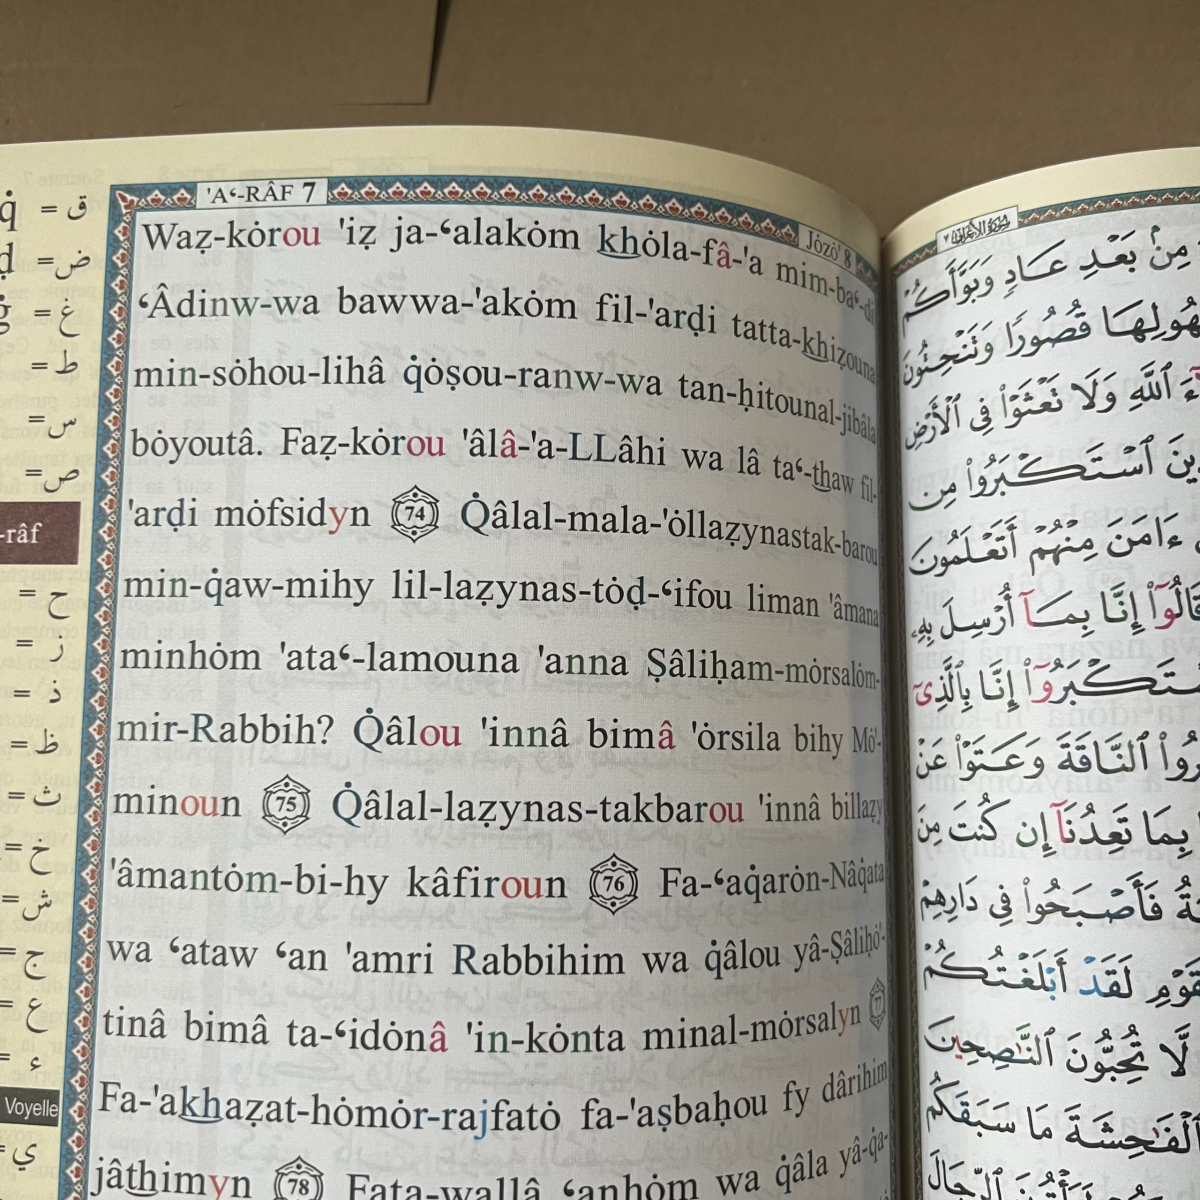 'A‘-RÂF 7
Jȯzȯ' 8
Waẓ-kȯrou 'iẓ ja-‘alakȯm khȯla-fâ-'a mim-ba‘-di
‘Âdinw-wa bawwa-'akȯm fil-'arḍi tatta-khiẓouna
min-sȯhou-lihâ q̇ȯṣou-ranw-wa tan-ḥitounal-jibâla
bȯyoutâ. Faẓ-kȯrou 'âlâ-'a-LLâhi wa lâ ta‘-thaw fil-
'arḍi mȯfsidyn 74 Q̇âlal-mala-'ȯllaẓynastak-barou
min-q̇aw-mihy lil-laẓynas-tȯḍ-‘ifou liman 'âmana
minhȯm 'ata‘-lamouna 'anna Ṣâliḥam-mȯrsalȯm-
mir-Rabbih? Q̇âlou 'innâ bimâ 'ȯrsila bihy Mȯ'-
minoun 75 Q̇âlal-laẓynas-takbarou 'innâ billaẓy
'âmantȯm-bi-hy kâfiroun 76 Fa-‘aq̇arȯn-Nâq̇ata
wa ‘ataw ‘an 'amri Rabbihim wa q̇âlou yâ-Ṣâliḥȯ'-
tinâ bimâ ta-‘idȯnâ 'in-kȯnta minal-mȯrsalyn 77
Fa-'akhaẓat-hȯmȯr-rajfatȯ fa-'aṣbaḥou fy dârihim
jâthimyn 78 Fata-wallâ ‘anhȯm wa q̇âla yâ-q̇a-
q̇ = ق
ḍ = ض
ġ = غ
= ط
= س
= ص
-râf
= ح
= ز
= ذ
= ظ
= ث
= خ
= ش
= ج
= ع
= ء
Voyelle
= ي
سورة الأعراف ٧
مِنۢ بَعْدِ عَادٍ وَبَوَّأَكُمْ
سُهُولِهَا قُصُورًا وَتَنْحِتُونَ
ٱللَّهِ وَلَا تَعْثَوْا۟ فِى ٱلْأَرْضِ
ٱسْتَكْبَرُوا۟ مِن
ءَامَنَ مِنْهُمْ أَتَعْلَمُونَ
قَالُوٓا۟ إِنَّا بِمَآ أُرْسِلَ بِهِۦ
ٱسْتَكْبَرُوٓا۟ إِنَّا بِٱلَّذِىٓ
ٱلنَّاقَةَ وَعَتَوْا۟ عَنْ
بِمَا تَعِدُنَآ إِن كُنتَ مِنَ
فَأَصْبَحُوا۟ فِى دَارِهِمْ
لَقَدْ أَبْلَغْتُكُمْ
لَّا تُحِبُّونَ ٱلنَّٰصِحِينَ
ٱلْفَٰحِشَةَ مَا سَبَقَكُم
ٱلرِّجَالَ